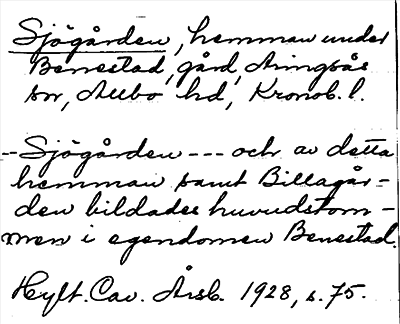 Sjögården, hemman under
Benestad, gård, Aringsås
sn, Allbo hd, Kronob. l.
--Sjögården --- och av detta
hemman samt Billagår-
den bildades huvudstom-
men i egendomen Benestad.
Hylt. Cav. Årsb. 1928, s. 75.